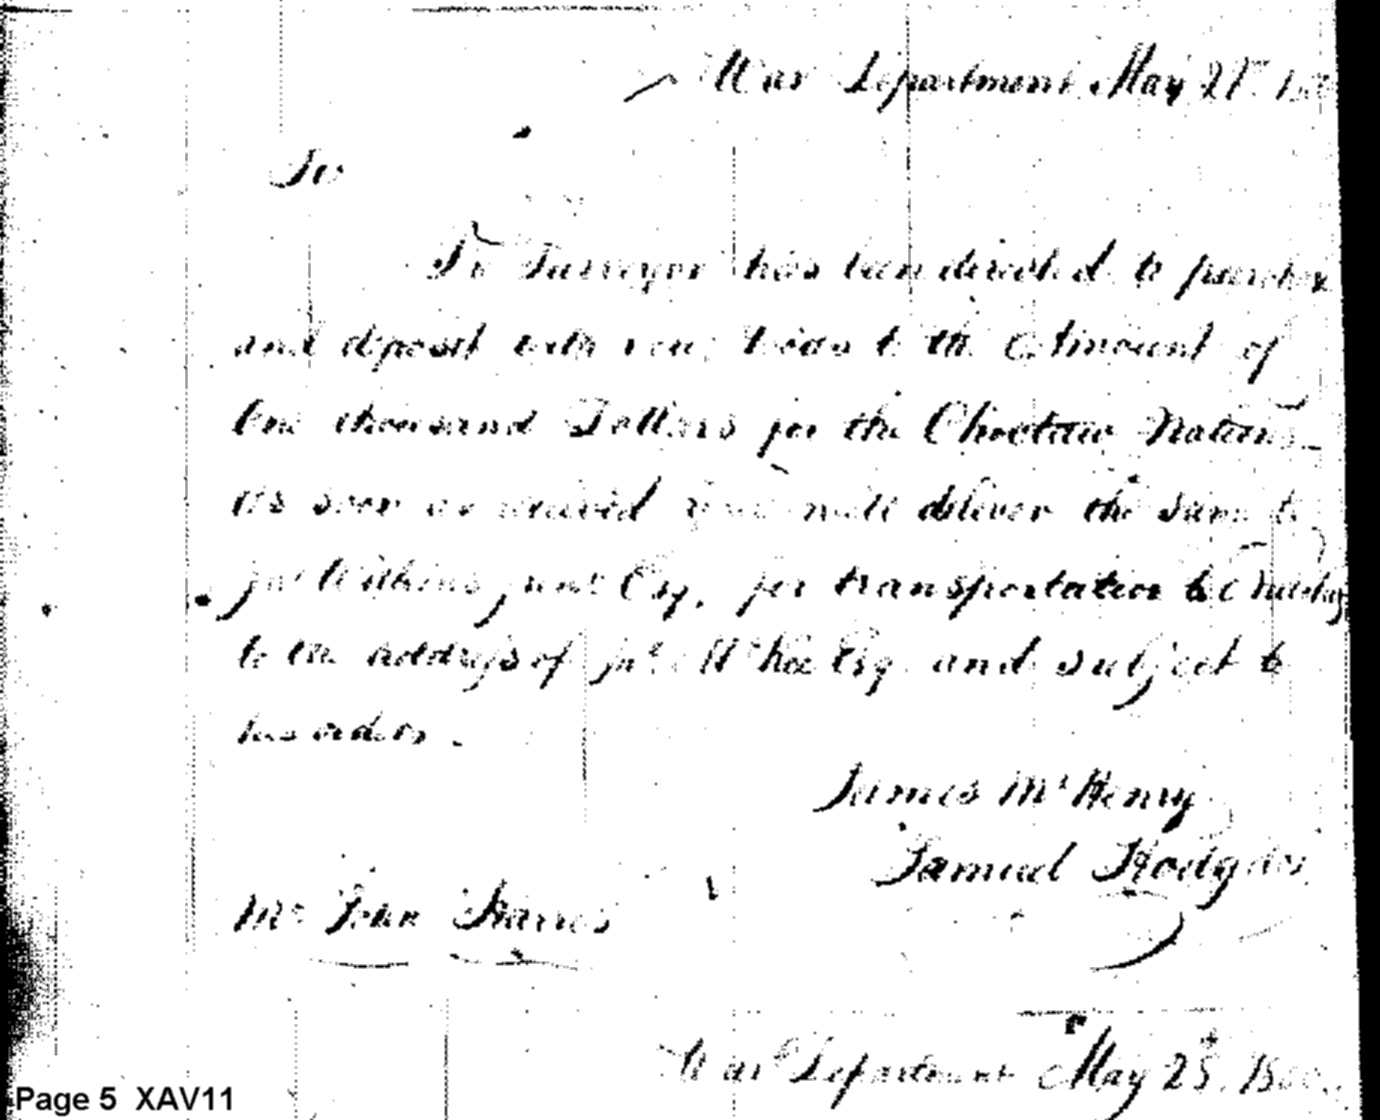 War Department May 21st
Sir
Tr Purveyor has been directed to purchase
and deposit with you to the Amount of
One thousand Dollars for the Choctaw Nation
As soon as received you will deliver the same to
Jno Wilkins junr Esq. for transportation to
to the address of Jno McKee Esq and subject to
his orders.
James McHenry
Samuel Hodgdon
Mr John Harris
War Department May 25th. 1800.
Page 5 XAV11